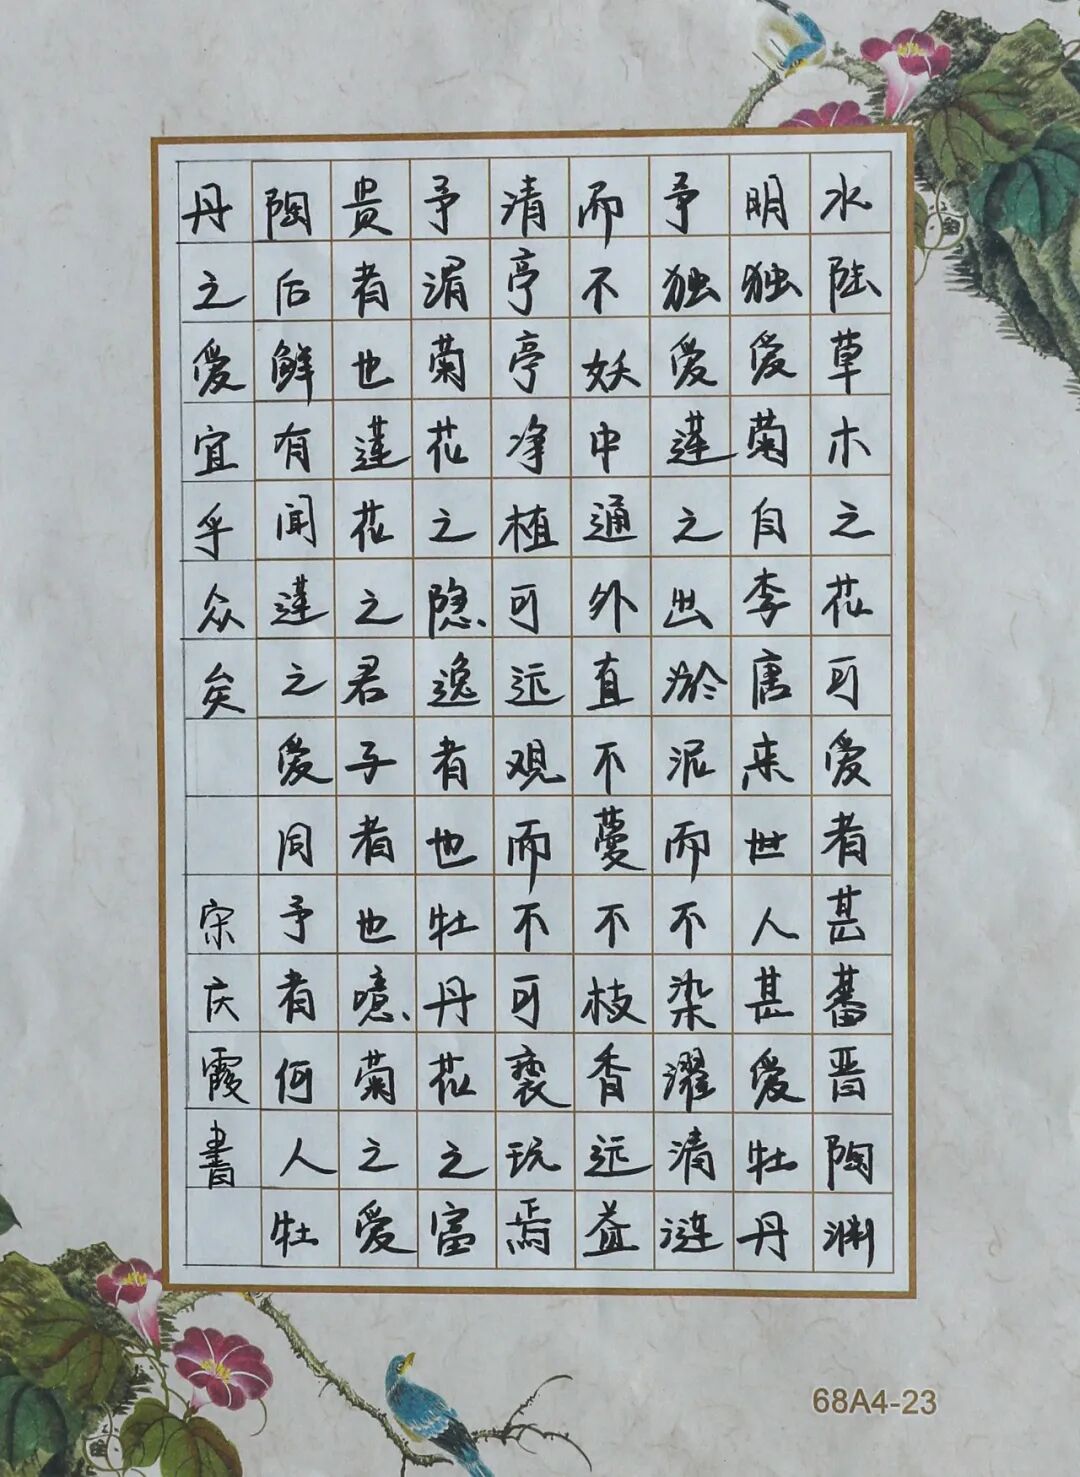 水陆草木之花可爱者甚蕃晋陶渊
明独爱菊自李唐来世人甚爱牡丹
予独爱莲之出淤泥而不染濯清涟
而不妖中通外直不蔓不枝香远益
清亭亭净植可远观而不可亵玩焉
予谓菊花之隐逸者也牡丹花之富
贵者也莲花之君子者也噫菊之爱
陶后鲜有闻莲之爱同予者何人牡
丹之爱宜乎众矣 宋庆霞書
68A4-23